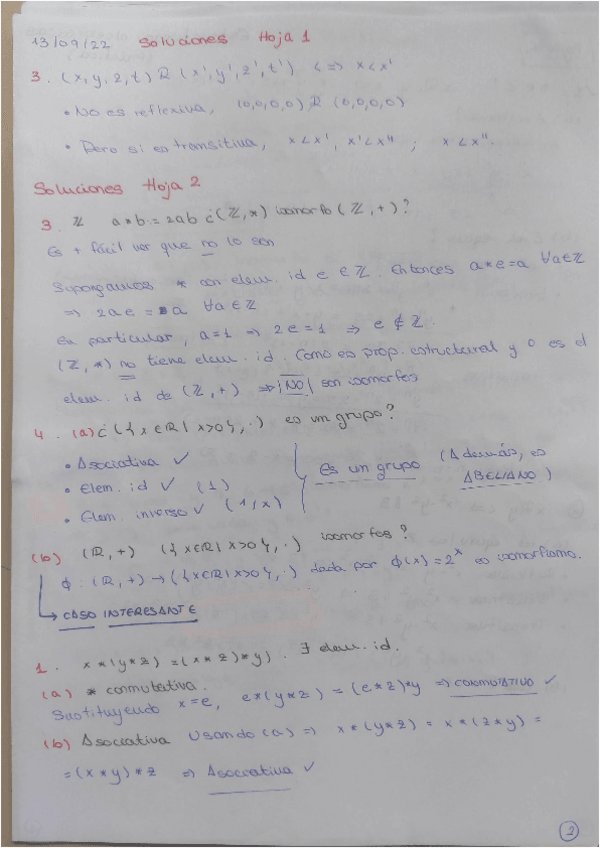 13/09/22 Soluciones Hoja 1
3. (x,y,z,t) R (x',y',z',t') <=> x<x'
• No es reflexiva, (0,0,0,0) R (0,0,0,0)
• Pero si es transitiva, x<x', x'<x'' ; x<x''.
Soluciones Hoja 2
3. ℤ a*b = 2ab ¿(ℤ,*) isomorfo (ℤ,+)?
Es + fácil ver que no lo son
Supongamos * con elem. id e ∈ ℤ. Entonces a*e=a ∀a∈ℤ
⇒ 2ae = a ∀a∈ℤ
En particular, a=1 ⇒ 2e=1 ⇒ e∉ℤ.
(ℤ,*) no tiene elem. id. Como es prop. estructural y 0 es el
elem. id de (ℤ,+) ⇒ |NO| son isomorfos
4. (a) ¿({x∈ℝ| x>0},·) es un grupo?
• Asociativa ✓
• Elem. id ✓ (1)
• Elem. inverso ✓ (1/x)
Es un grupo (Además, es
ABELIANO)
(b) (ℝ,+) ({x∈ℝ| x>0},·) isomorfos?
ϕ: (ℝ,+) → ({x∈ℝ| x>0},·) dada por ϕ(x)=2ˣ es isomorfismo.
↳ CASO INTERESANTE
1. x*(y*z) = (x*z)*y). ∃ elem. id.
(a) * conmutativa.
Sustituyendo x=e, e*(y*z) = (e*z)*y ⇒ CONMUTATIVO ✓
(b) Asociativa Usando (a) ⇒ x*(y*z) = x*(z*y) =
=(x*y)*z ⇒ Asociativa ✓
2